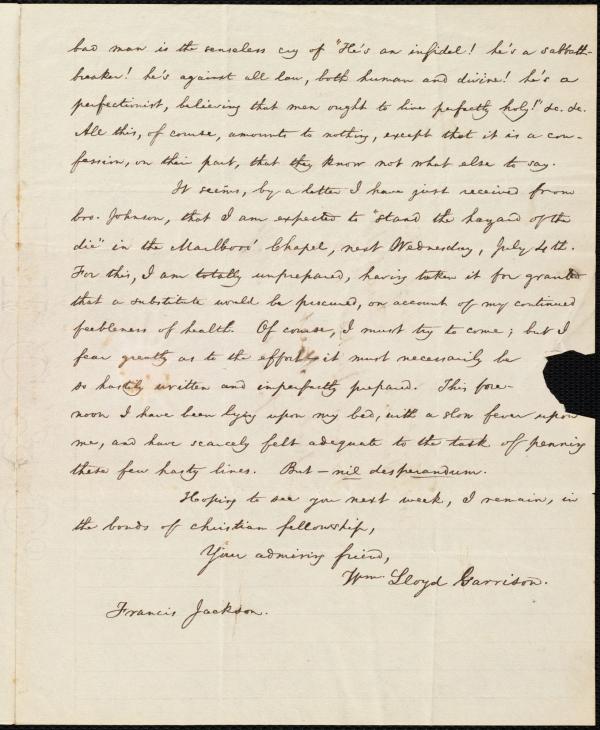 bad man is the senseless cry of "He's an infidel! he's a sabbath-
breaker! he's against all law, both human and divine! he's a
perfectionist, believing that men ought to live perfectly holy!" &c. &c.
All this, of course, amounts to nothing, except that it is a con-
fession, on their part, that they know not what else to say.
It seems, by a letter I have just received from
bro. Johnson, that I am expected to "stand the hazard of the
die" in the Marlboro' Chapel, next Wednesday, July 4th.
For this, I am totally unprepared, having taken it for granted
that a substitute would be procured, on account of my continued
feebleness of health. Of course, I must try to come; but I
fear greatly as to the effort, it must necessarily be
so hastily written and imperfectly prepared. This fore-
noon I have been lying upon my bed, with a slow fever upon
me, and have scarcely felt adequate to the task of penning
these few hasty lines. But—nil desperandum.
Hoping to see you next week, I remain, in
the bonds of christian fellowship,
Your admiring friend,
Wm. Lloyd Garrison.
Francis Jackson.